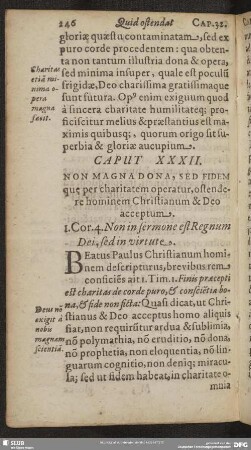 246 Quid ostendat CAP.32.
gloriæ quæstu, contaminatam, sed ex
puro corde procedentem: qua obten-
ta non tantum illustria dona & opera,
sed minima insuper, quale est poculū
frigidæ, Deo charissima gratissimaque
sunt futura. Opꝰ enim exiguum quod
à sincera charitate humilitateq; pro-
ficiscitur melius & præstantius est ma-
ximis quibusq;, quorum origo sit su-
perbia & gloriæ aucupium.
Charitas
etiā mi-
nima o-
pera
magna
facit.
CAPUT XXXII.
NON MAGNA DONA, SED FIDEM
que per charitatem operatur, ostende-
re hominem Christianum & Deo
acceptum.
1. Cor. 4. Non in sermone est Regnum
Dei, sed in virtute.
BEatus Paulus Christianum homi-
nem descripturus, brevibus rem
consciēs ait 1. Tim. 1. Finis præcepti
est charitas de corde puro, & consciētia bo-
na, & fide non ficta: Quasi dicat, ut Chri-
stianus & Deo acceptus homo aliquis
fiat, non requirūtur ardua & sublimia,
nō polymathia, nō eruditio, nō dona,
nō prophetia, non eloquentia, nō lin-
guarum cognitio, non deniq; miracu-
la; sed ut fidem habeat, in charitate o-
mnia
Deus nō
exigit à
nobis
magnam
scientiā.
SLUB